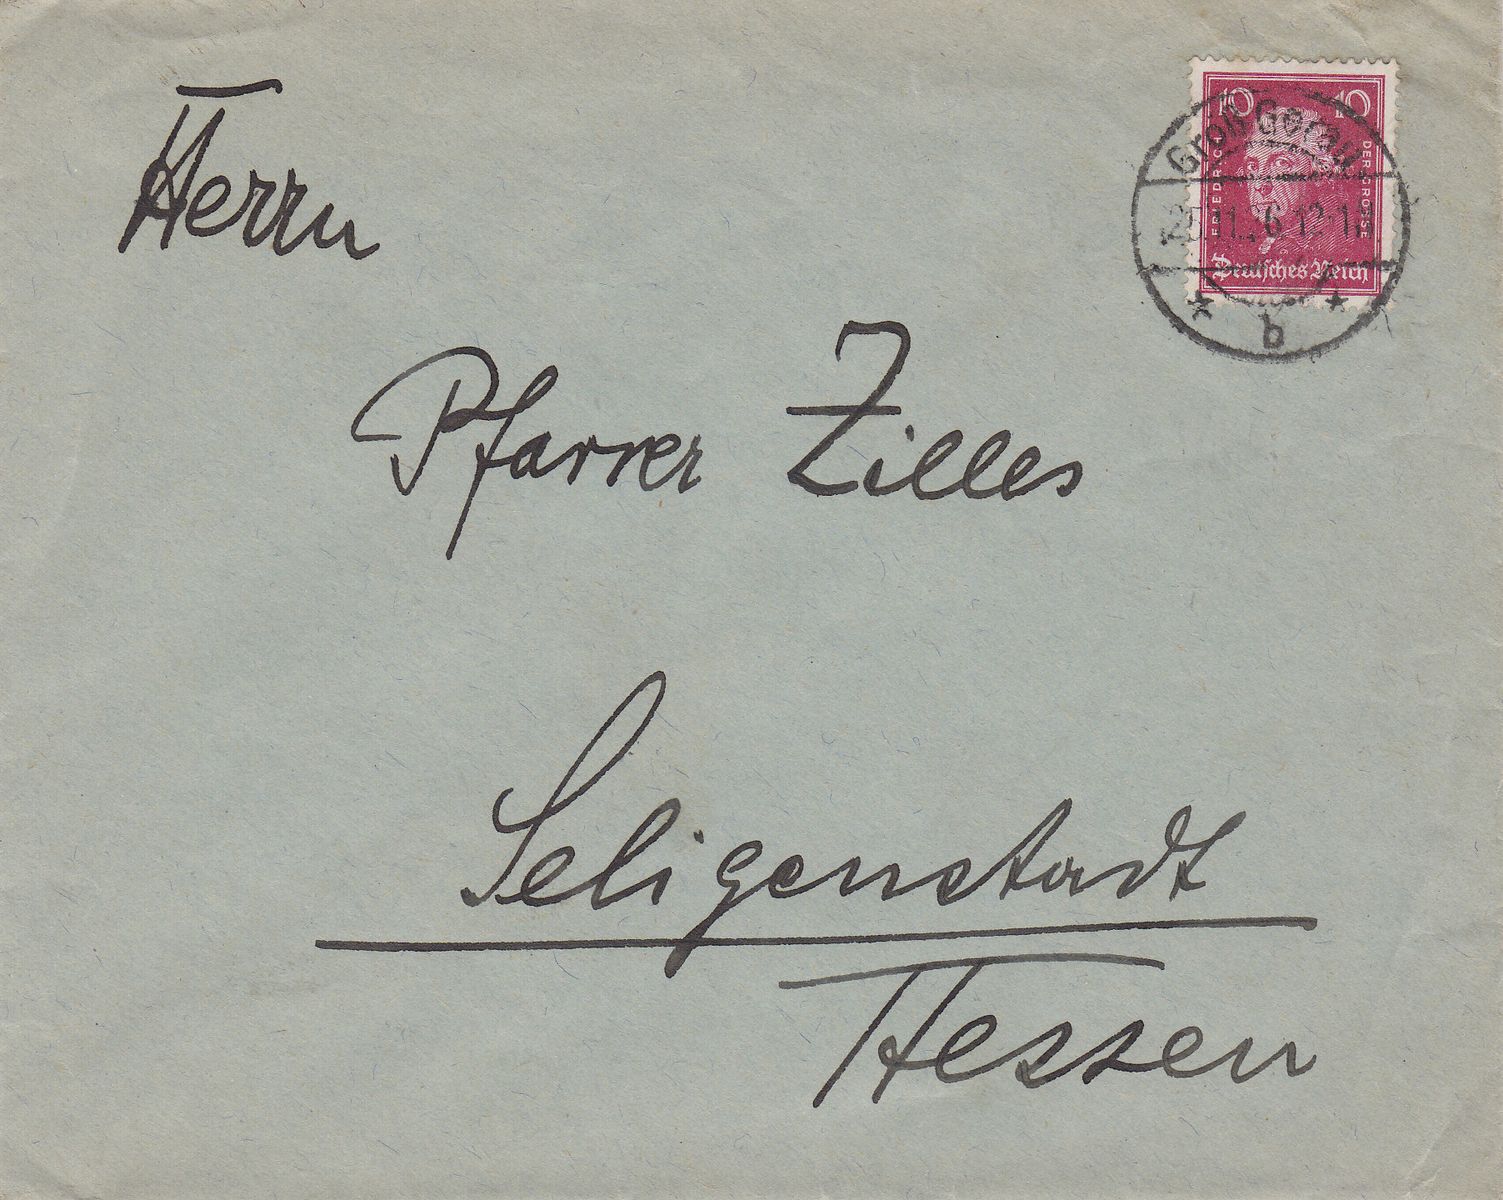 Herrn
Pfarrer Zilles
Seligenstadt
Hessen
10 10
FRIEDRICH
DER GROSSE
Deutsches Reich
Groß Gerau
11.26.12-1N
b